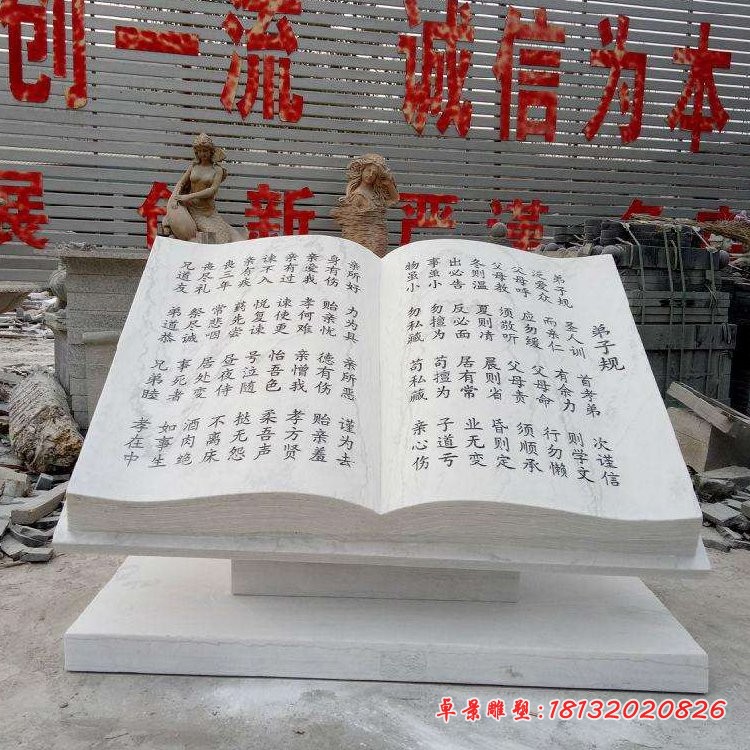 创一流 诚信为本
展 创新 严谨
弟子规
弟子规 圣人训 首孝弟 次谨信
泛爱众 而亲仁 有余力 则学文
父母呼 应勿缓 父母命 行勿懒
父母教 须敬听 父母责 须顺承
冬则温 夏则清 晨则省 昏则定
出必告 反必面 居有常 业无变
事虽小 勿擅为 苟擅为 子道亏
物虽小 勿私藏 苟私藏 亲心伤
亲所好 力为具 亲所恶 谨为去
身有伤 贻亲忧 德有伤 贻亲羞
亲爱我 孝何难 亲憎我 孝方贤
亲有过 谏使更 怡吾色 柔吾声
谏不入 悦复谏 号泣随 挞无怨
亲有疾 药先尝 昼夜侍 不离床
丧三年 常悲咽 居处变 酒肉绝
丧尽礼 祭尽诚 事死者 如事生
兄道友 弟道恭 兄弟睦 孝在中
卓景雕塑:18132020826